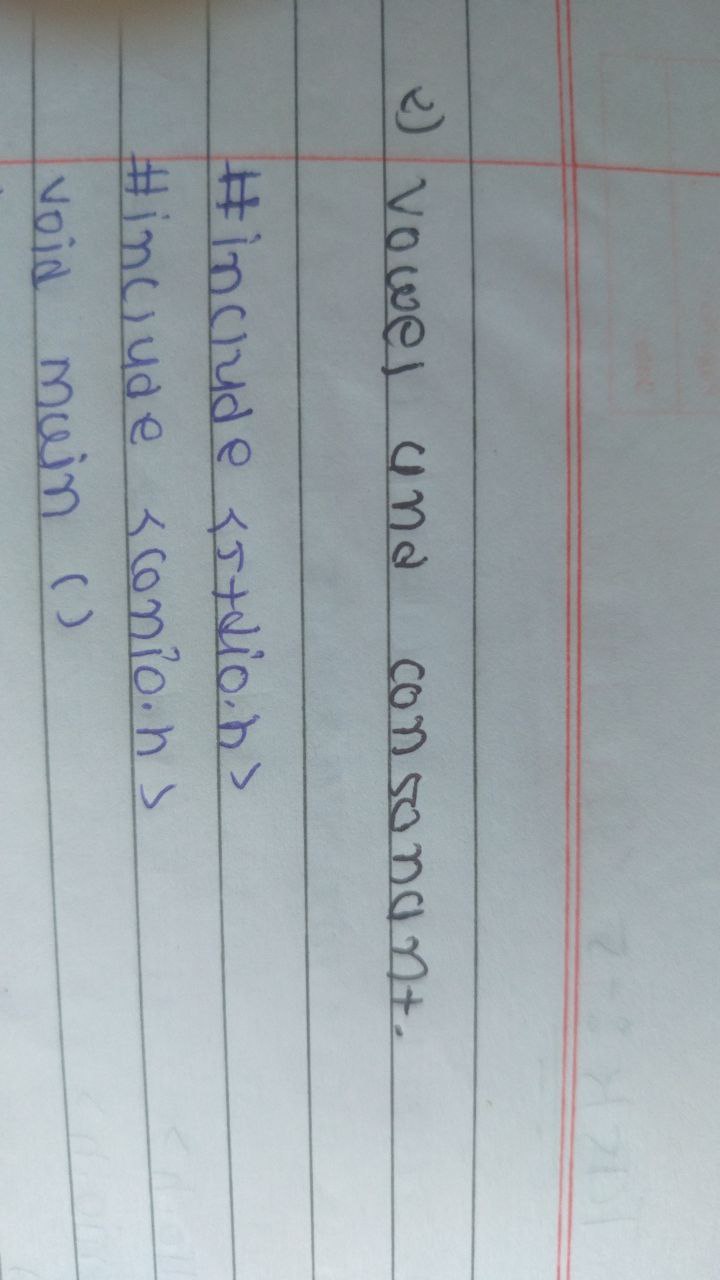 2) Vowel and consonant.
#include <stdio.h>
#include <conio.h>
void main ()